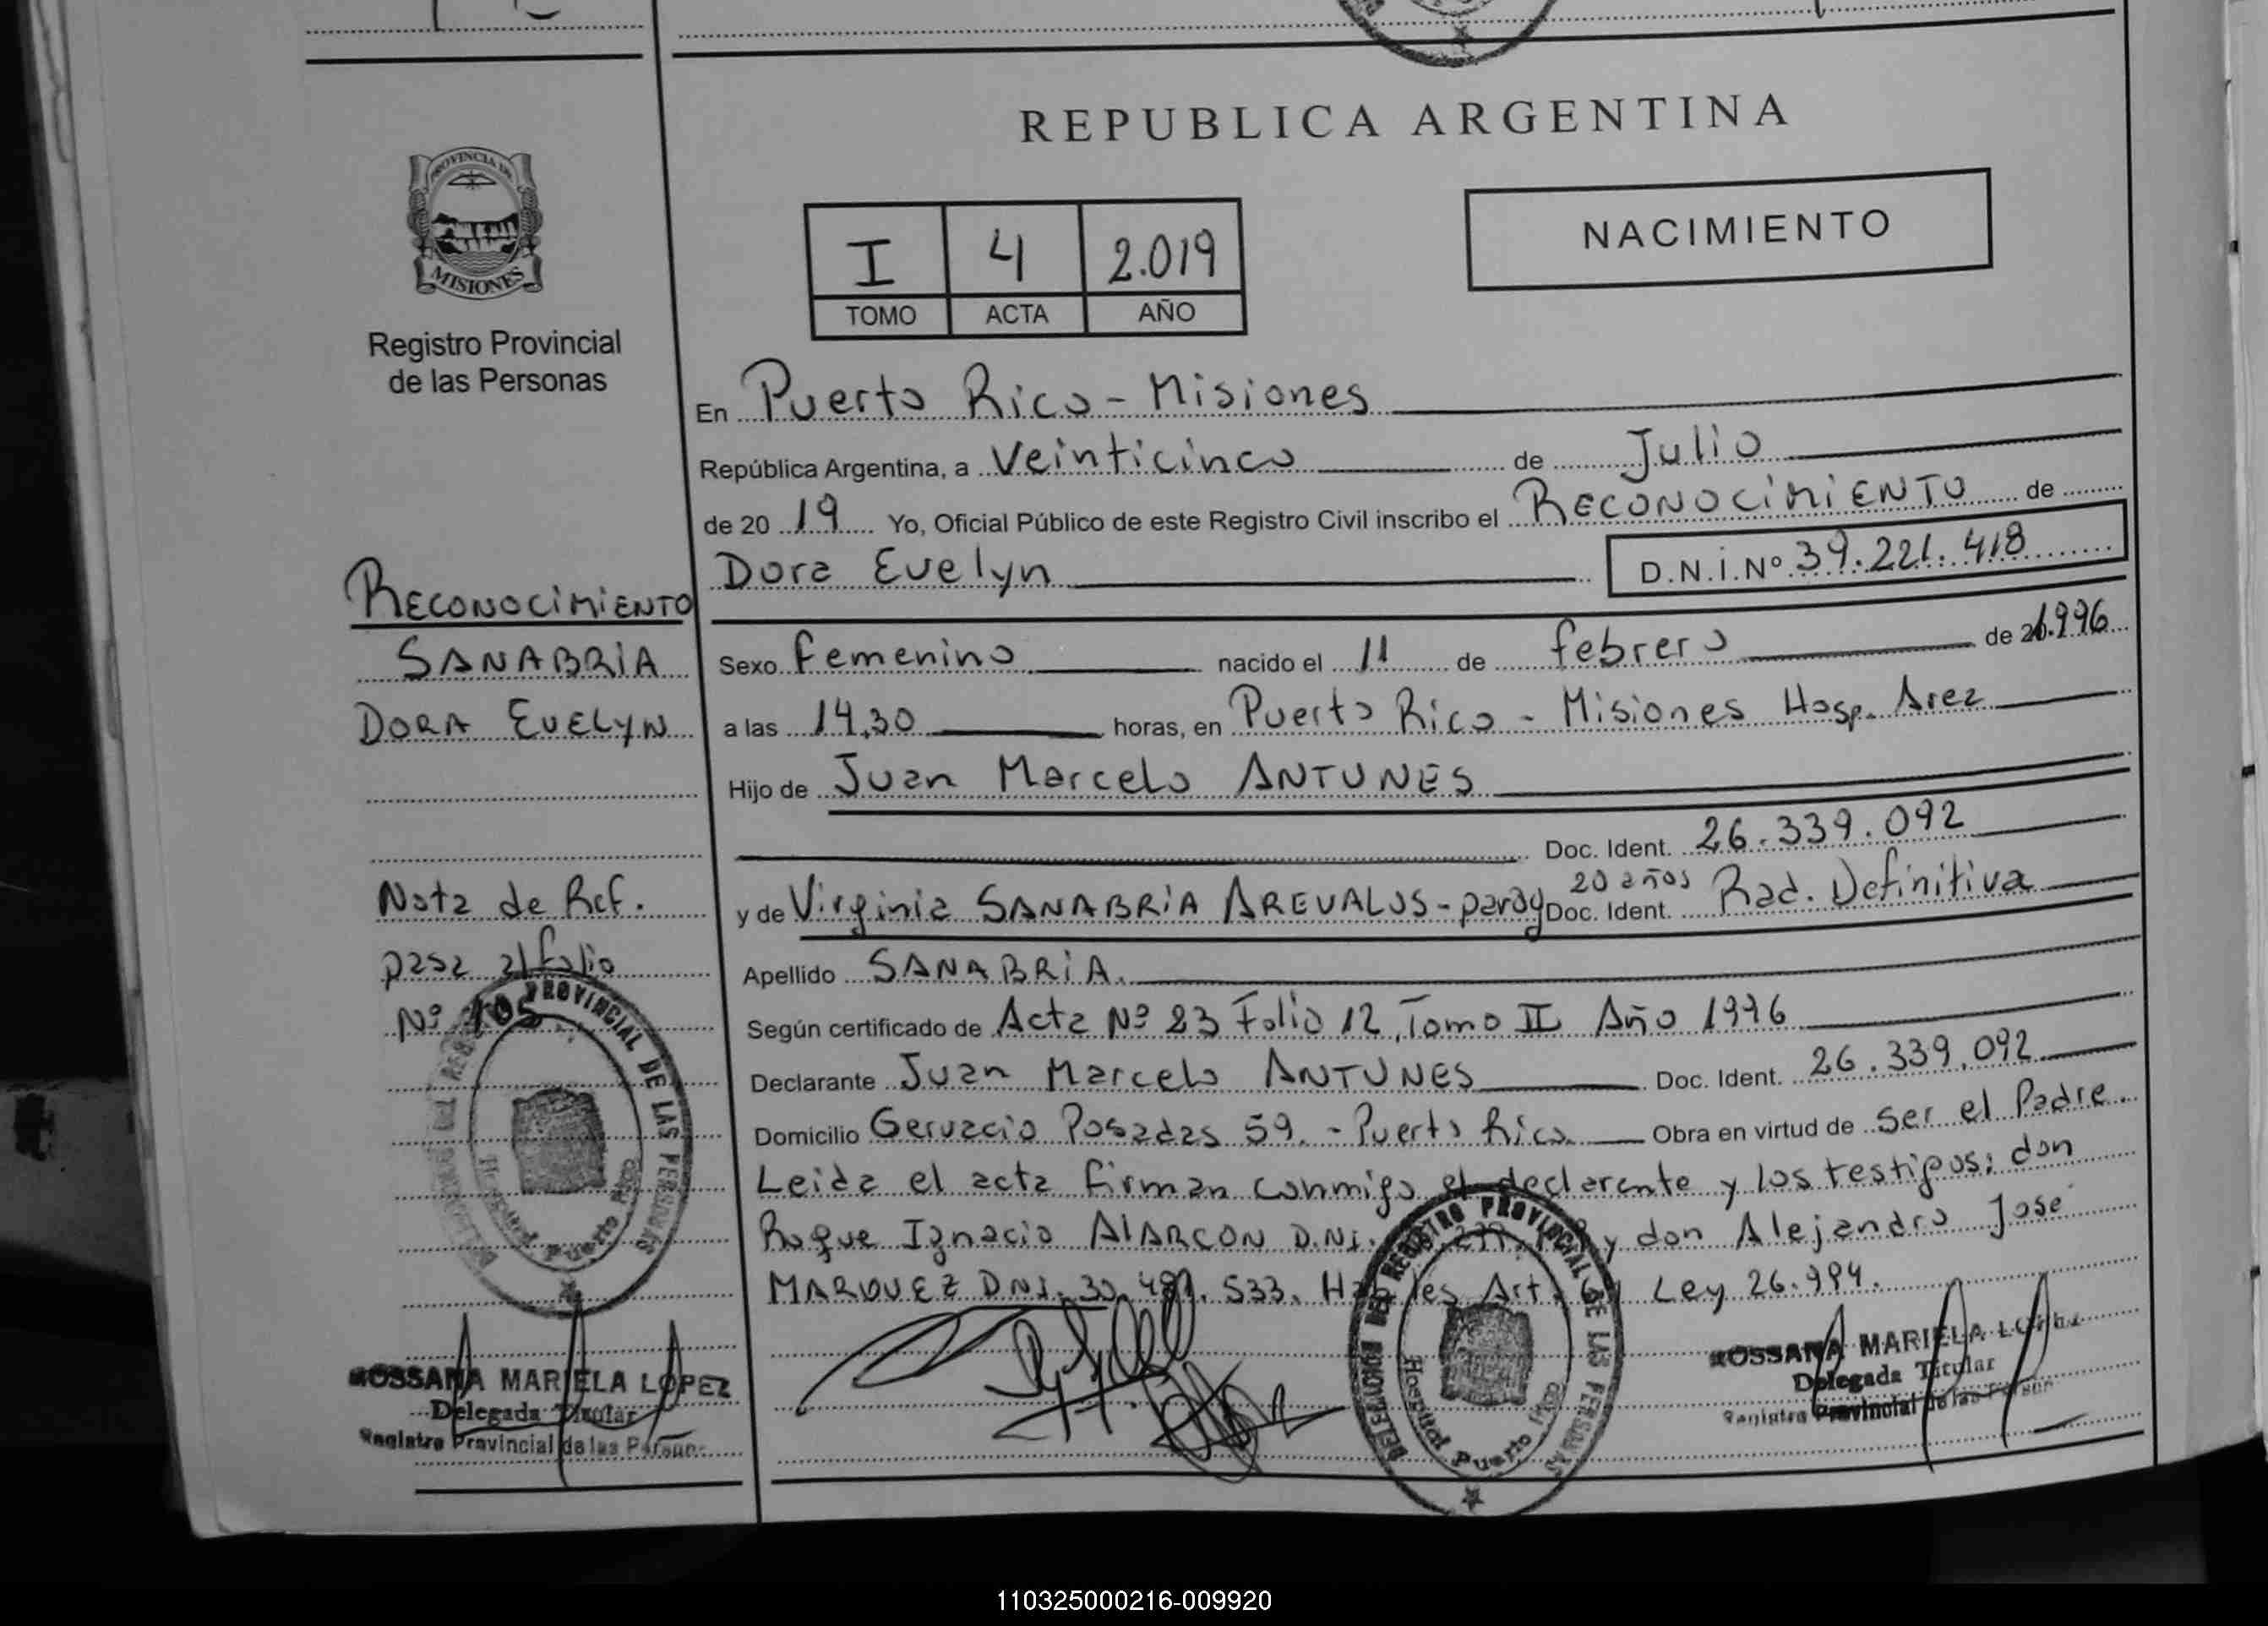 REPUBLICA ARGENTINA
PROVINCIA DE
MISIONES
Registro Provincial
de las Personas
NACIMIENTO
I 4 2.019
TOMO ACTA AÑO
En Puerto Rico - Misiones
República Argentina, a Veinticinco de Julio
de 20 19 Yo, Oficial Público de este Registro Civil inscribo el RECONOCIMIENTO de
Dora Evelyn D.N.I. Nº 39.221.418
Sexo femenino nacido el 11 de febrero de 1.996
a las 14,30 horas, en Puerto Rico - Misiones Hosp. Area
Hijo de Juan Marcelo ANTUNES
Doc. Ident. 26.339.092
y de Virginia SANABRIA AREVALOS - parag 20 años Doc. Ident. Rad. Definitiva
Apellido SANABRIA.
Según certificado de Acta Nº 23 Folio 12, Tomo II Año 1996
Declarante Juan Marcelo ANTUNES Doc. Ident. 26.339.092
Domicilio Gervacio Posadas 59. - Puerto Rico Obra en virtud de ser el Padre.
Leida el acta firman conmigo el declarante y los testigos: don
Roque Ignacio ALARCON D.N.I. y don Alejandro José
MARQUEZ DNI. 30.489.533. Ley 26.994.
RECONOCIMIENTO
SANABRIA
DORA EVELYN
Nota de Ref.
pasa al folio
Nº 105
DELEGACION DEL REGISTRO PROVINCIAL DE LAS PERSONAS
Hospital Puerto Rico
ROSSANA MARIELA LOPEZ
Delegada Titular
Registro Provincial de las Person
DELEGACION DEL REGISTRO PROVINCIAL DE LAS PERSONAS
Hospital Puerto Rico
ROSSANA MARIELA LOPEZ
Delegada Titular
Registro Provincial de las Person
110325000216-009920